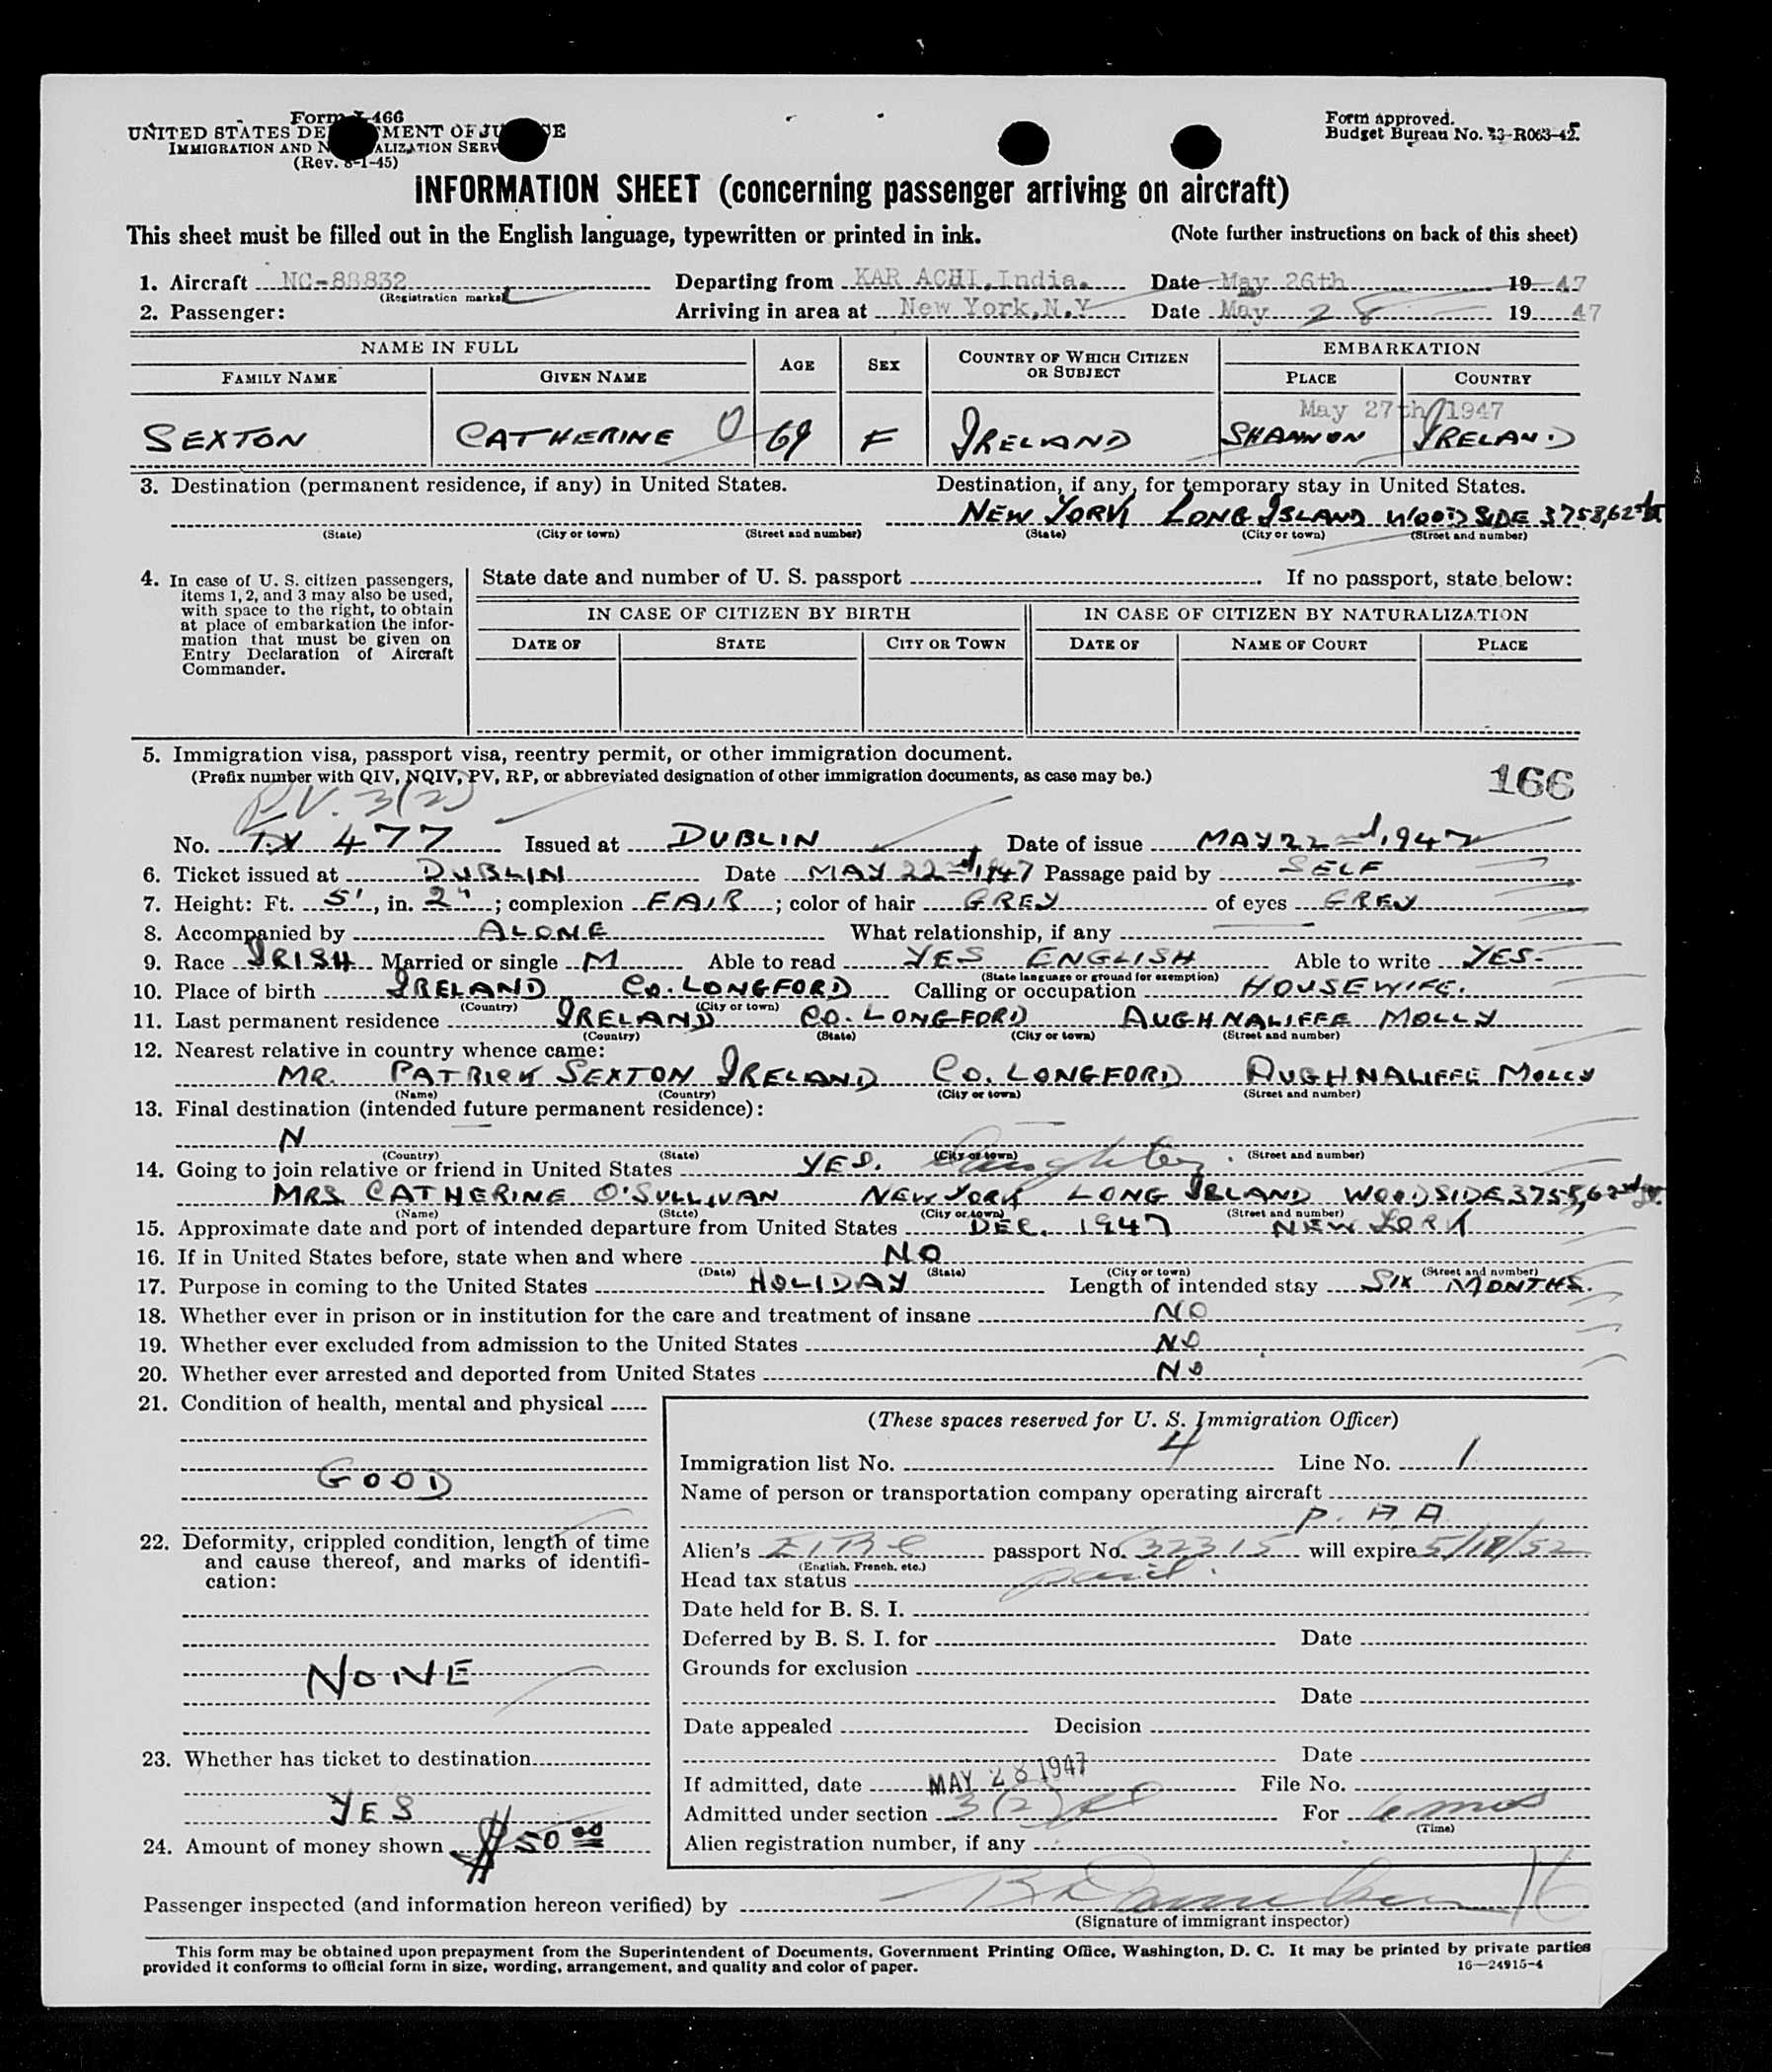 Form I-466
UNITED STATES DE MENT OF JU E
IMMIGRATION AND N ALIZATION SERV
(Rev. 8-1-45)
Form approved.
Budget Bureau No. 43-R063-42.
INFORMATION SHEET (concerning passenger arriving on aircraft)
This sheet must be filled out in the English language, typewritten or printed in ink. (Note further instructions on back of this sheet)
1. Aircraft NC-88832 Departing from KAR ACHI, India. Date May 26th 19 47
(Registration marks)
2. Passenger: Arriving in area at New York, N.Y Date May 28 19 47
NAME IN FULL AGE SEX COUNTRY OF WHICH CITIZEN OR SUBJECT EMBARKATION
FAMILY NAME GIVEN NAME PLACE COUNTRY
May 27th 1947
SEXTON CATHERINE 69 F IRELAND SHANNON IRELAND
3. Destination (permanent residence, if any) in United States. Destination, if any, for temporary stay in United States.
NEW YORK LONG ISLAND WOODSIDE 3758, 62nd
(State) (City or town) (Street and number) (State) (City or town) (Street and number)
4. In case of U. S. citizen passengers, items 1, 2, and 3 may also be used, with space to the right, to obtain at place of embarkation the information that must be given on Entry Declaration of Aircraft Commander.
State date and number of U. S. passport If no passport, state below:
IN CASE OF CITIZEN BY BIRTH IN CASE OF CITIZEN BY NATURALIZATION
DATE OF STATE CITY OR TOWN DATE OF NAME OF COURT PLACE
5. Immigration visa, passport visa, reentry permit, or other immigration document.
(Prefix number with QIV, NQIV, PV, RP, or abbreviated designation of other immigration documents, as case may be.)
166
P.V. 3(2)
No. 477 Issued at DUBLIN Date of issue MAY 22nd, 1947
6. Ticket issued at DUBLIN Date MAY 22nd, 1947 Passage paid by SELF
7. Height: Ft. 5', in. 2"; complexion FAIR; color of hair GREY of eyes GREY
8. Accompanied by ALONE What relationship, if any
9. Race IRISH Married or single M Able to read YES ENGLISH Able to write YES.
(State language or ground for exemption)
10. Place of birth IRELAND CO. LONGFORD Calling or occupation HOUSEWIFE.
(Country) (City or town)
11. Last permanent residence IRELAND CO. LONGFORD AUGHNALIFFE MOLLY
(Country) (State) (City or town) (Street and number)
12. Nearest relative in country whence came:
MR. PATRICK SEXTON IRELAND CO. LONGFORD AUGHNALIFFE MOLLY
(Name) (Country) (City or town) (Street and number)
13. Final destination (intended future permanent residence):
N
(Country) (State) (City or town) (Street and number)
14. Going to join relative or friend in United States YES. Daughter.
MRS CATHERINE O'SULLIVAN NEW YORK LONG ISLAND WOODSIDE 3755, 62nd St.
(Name) (State) (City or town) (Street and number)
15. Approximate date and port of intended departure from United States DEC. 1947 NEW YORK
16. If in United States before, state when and where NO
(Date) (State) (City or town) (Street and number)
17. Purpose in coming to the United States HOLIDAY Length of intended stay SIX MONTHS.
18. Whether ever in prison or in institution for the care and treatment of insane NO
19. Whether ever excluded from admission to the United States NO
20. Whether ever arrested and deported from United States NO
21. Condition of health, mental and physical
GOOD
22. Deformity, crippled condition, length of time and cause thereof, and marks of identification:
NONE
23. Whether has ticket to destination
YES
24. Amount of money shown $50.00
(These spaces reserved for U. S. Immigration Officer)
Immigration list No. 4 Line No. 1
Name of person or transportation company operating aircraft
P. A. A
Alien's EIRE passport No. 32315 will expire 5/18/52
(English, French, etc.)
Head tax status paid.
Date held for B. S. I.
Deferred by B. S. I. for Date
Grounds for exclusion
Date
Date appealed Decision
Date
If admitted, date MAY 28 1947 File No.
Admitted under section 3(2) For 6 mos
(Time)
Alien registration number, if any
Passenger inspected (and information hereon verified) by
(Signature of immigrant inspector)
This form may be obtained upon prepayment from the Superintendent of Documents, Government Printing Office, Washington, D. C. It may be printed by private parties
provided it conforms to official form in size, wording, arrangement, and quality and color of paper. 16—24915-4